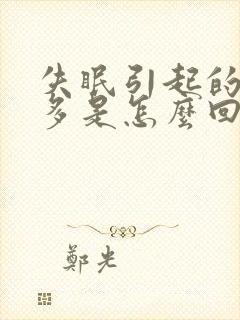 失眠引起的
多是怎麼回
鄭光